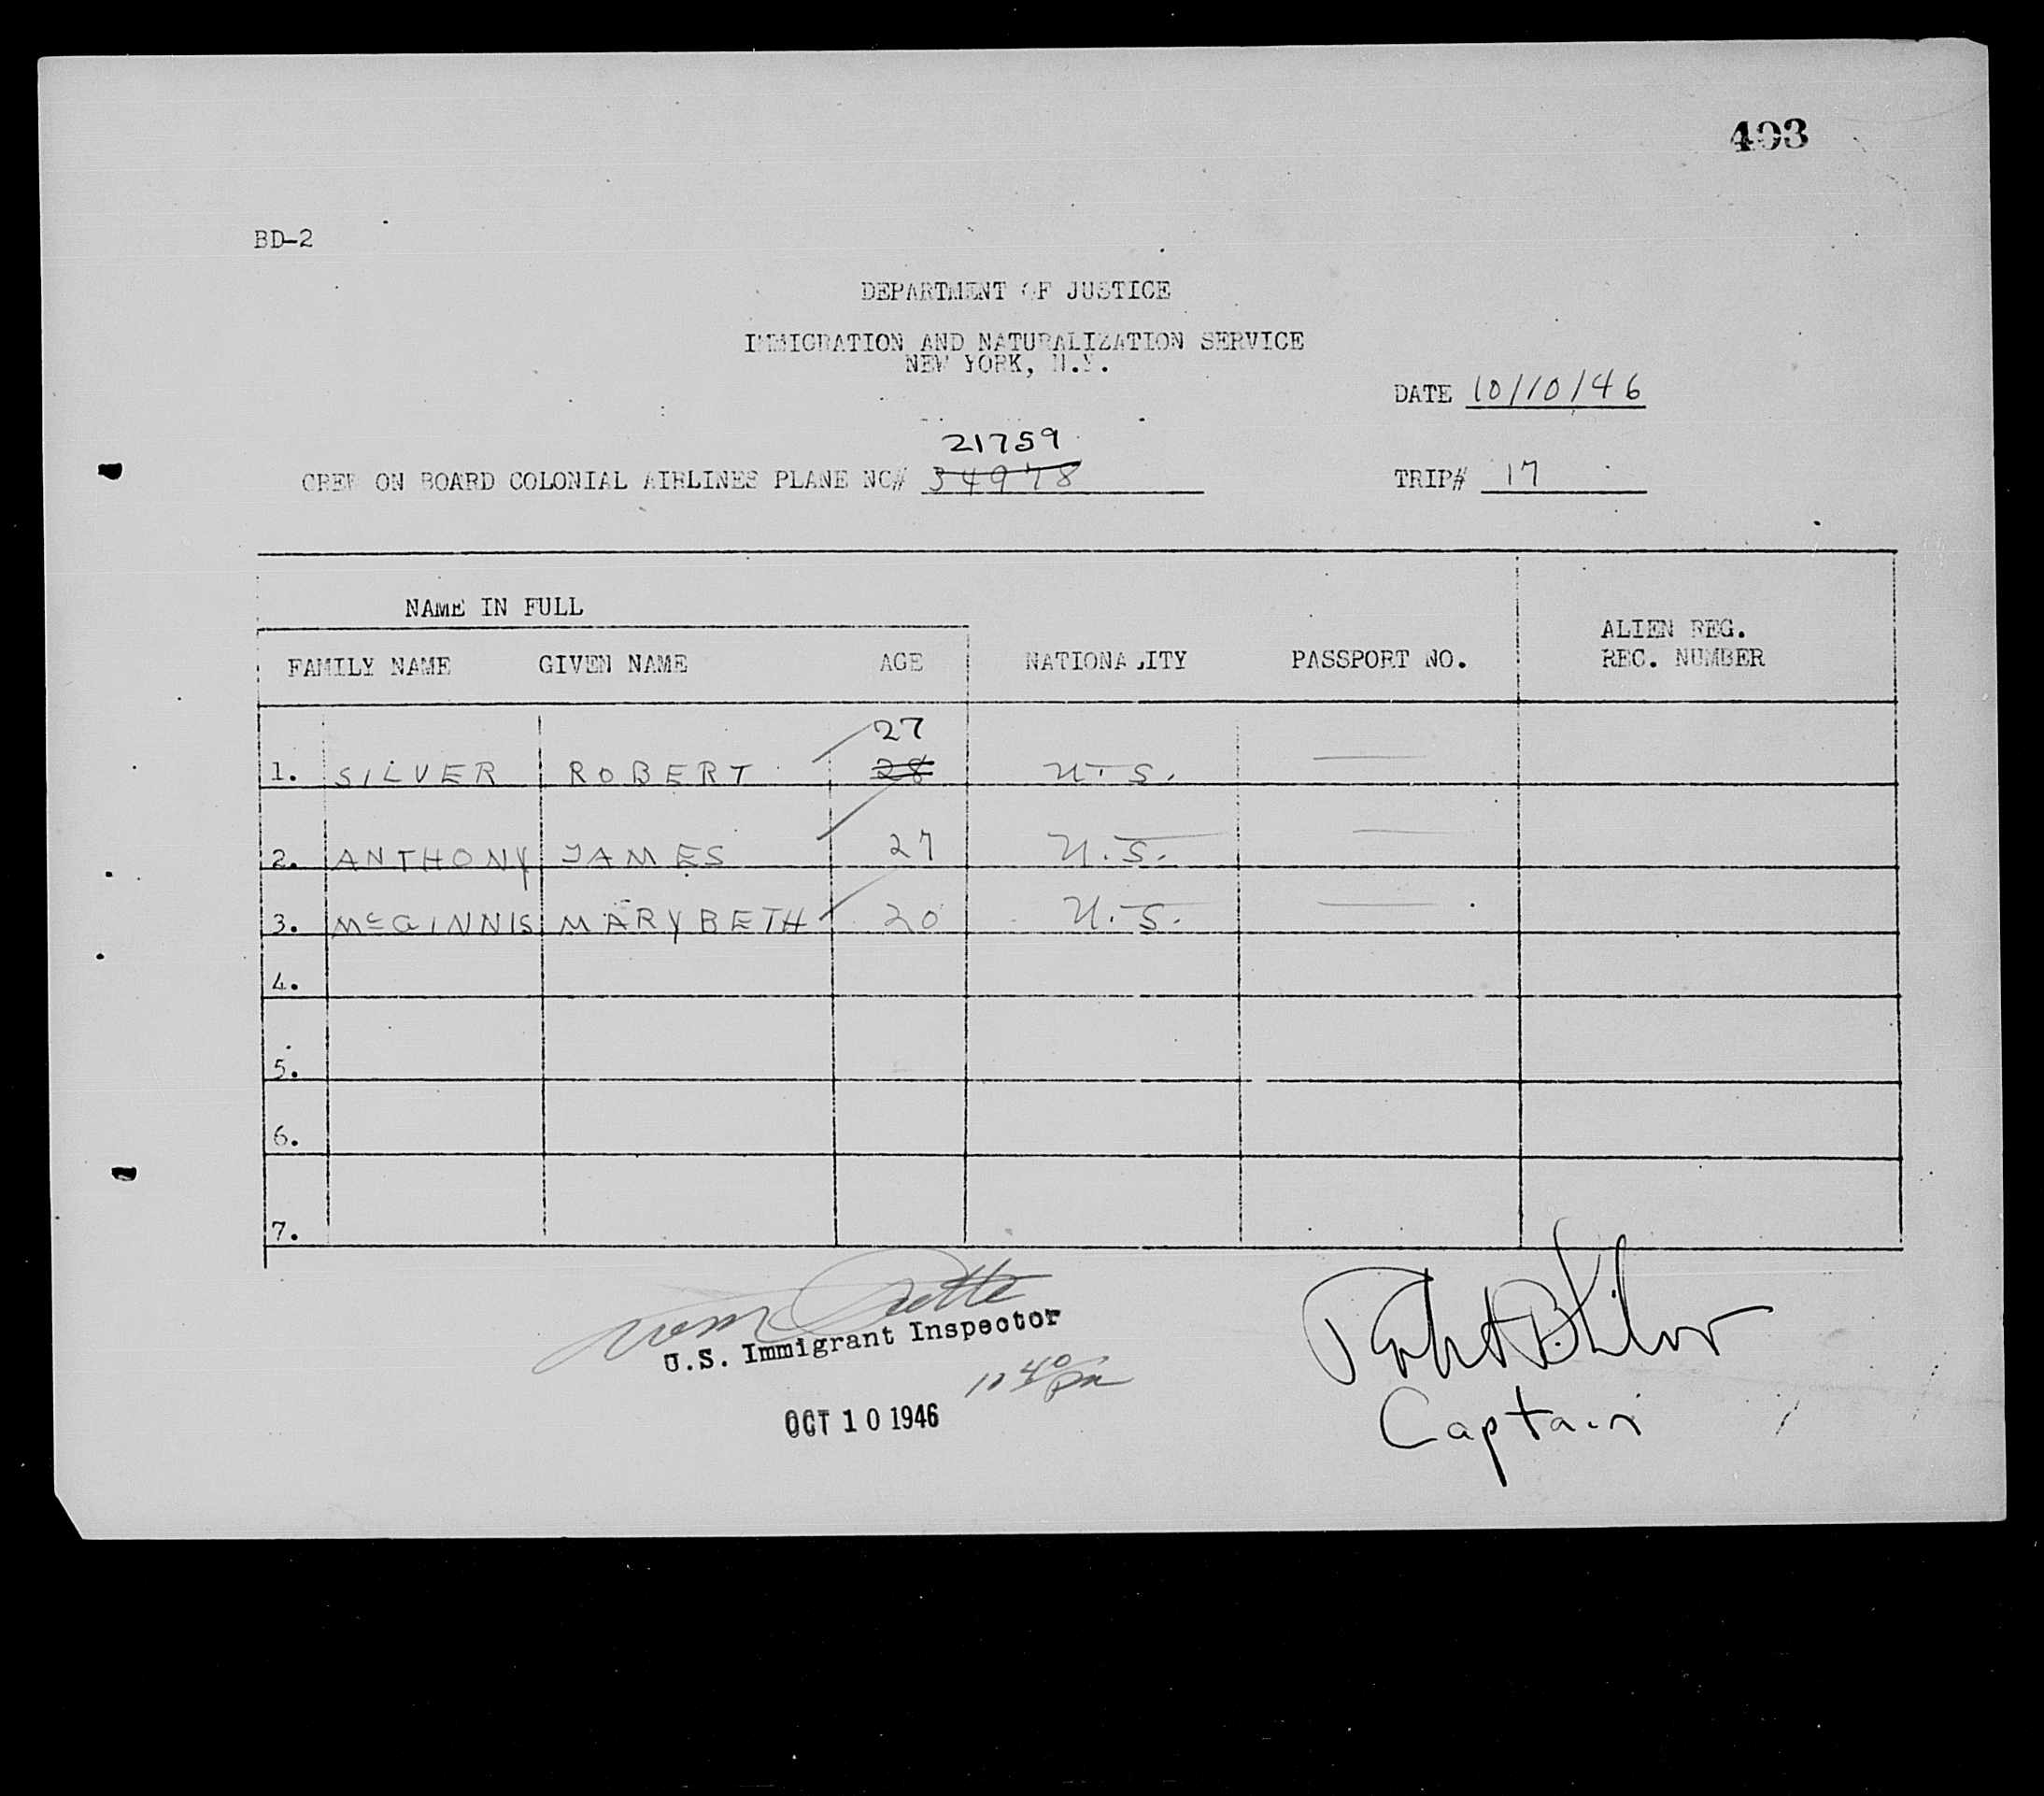 403
BD-2
DEPARTMENT OF JUSTICE
IMMIGRATION AND NATURALIZATION SERVICE
NEW YORK, N.Y.
DATE 10/10/46
21759
CREW ON BOARD COLONIAL AIRLINES PLANE NC# 34978
TRIP# 17
NAME IN FULL
FAMILY NAME GIVEN NAME AGE NATIONALITY PASSPORT NO. ALIEN REG.
REC. NUMBER
27
1. SILVER ROBERT 28 U.S. —
2. ANTHONY JAMES 27 U.S. —
3. McGINNIS MARYBETH 20 U.S. —
4.
5.
6.
7.
U.S. Immigrant Inspector
11 40 pm
OCT 10 1946
Robert B. Silver
Captain